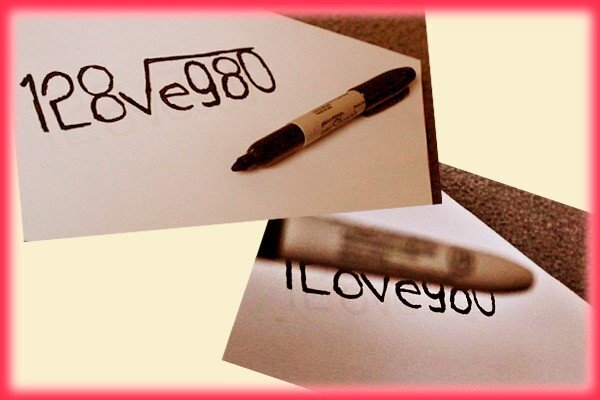 128√e980
ILoveyou